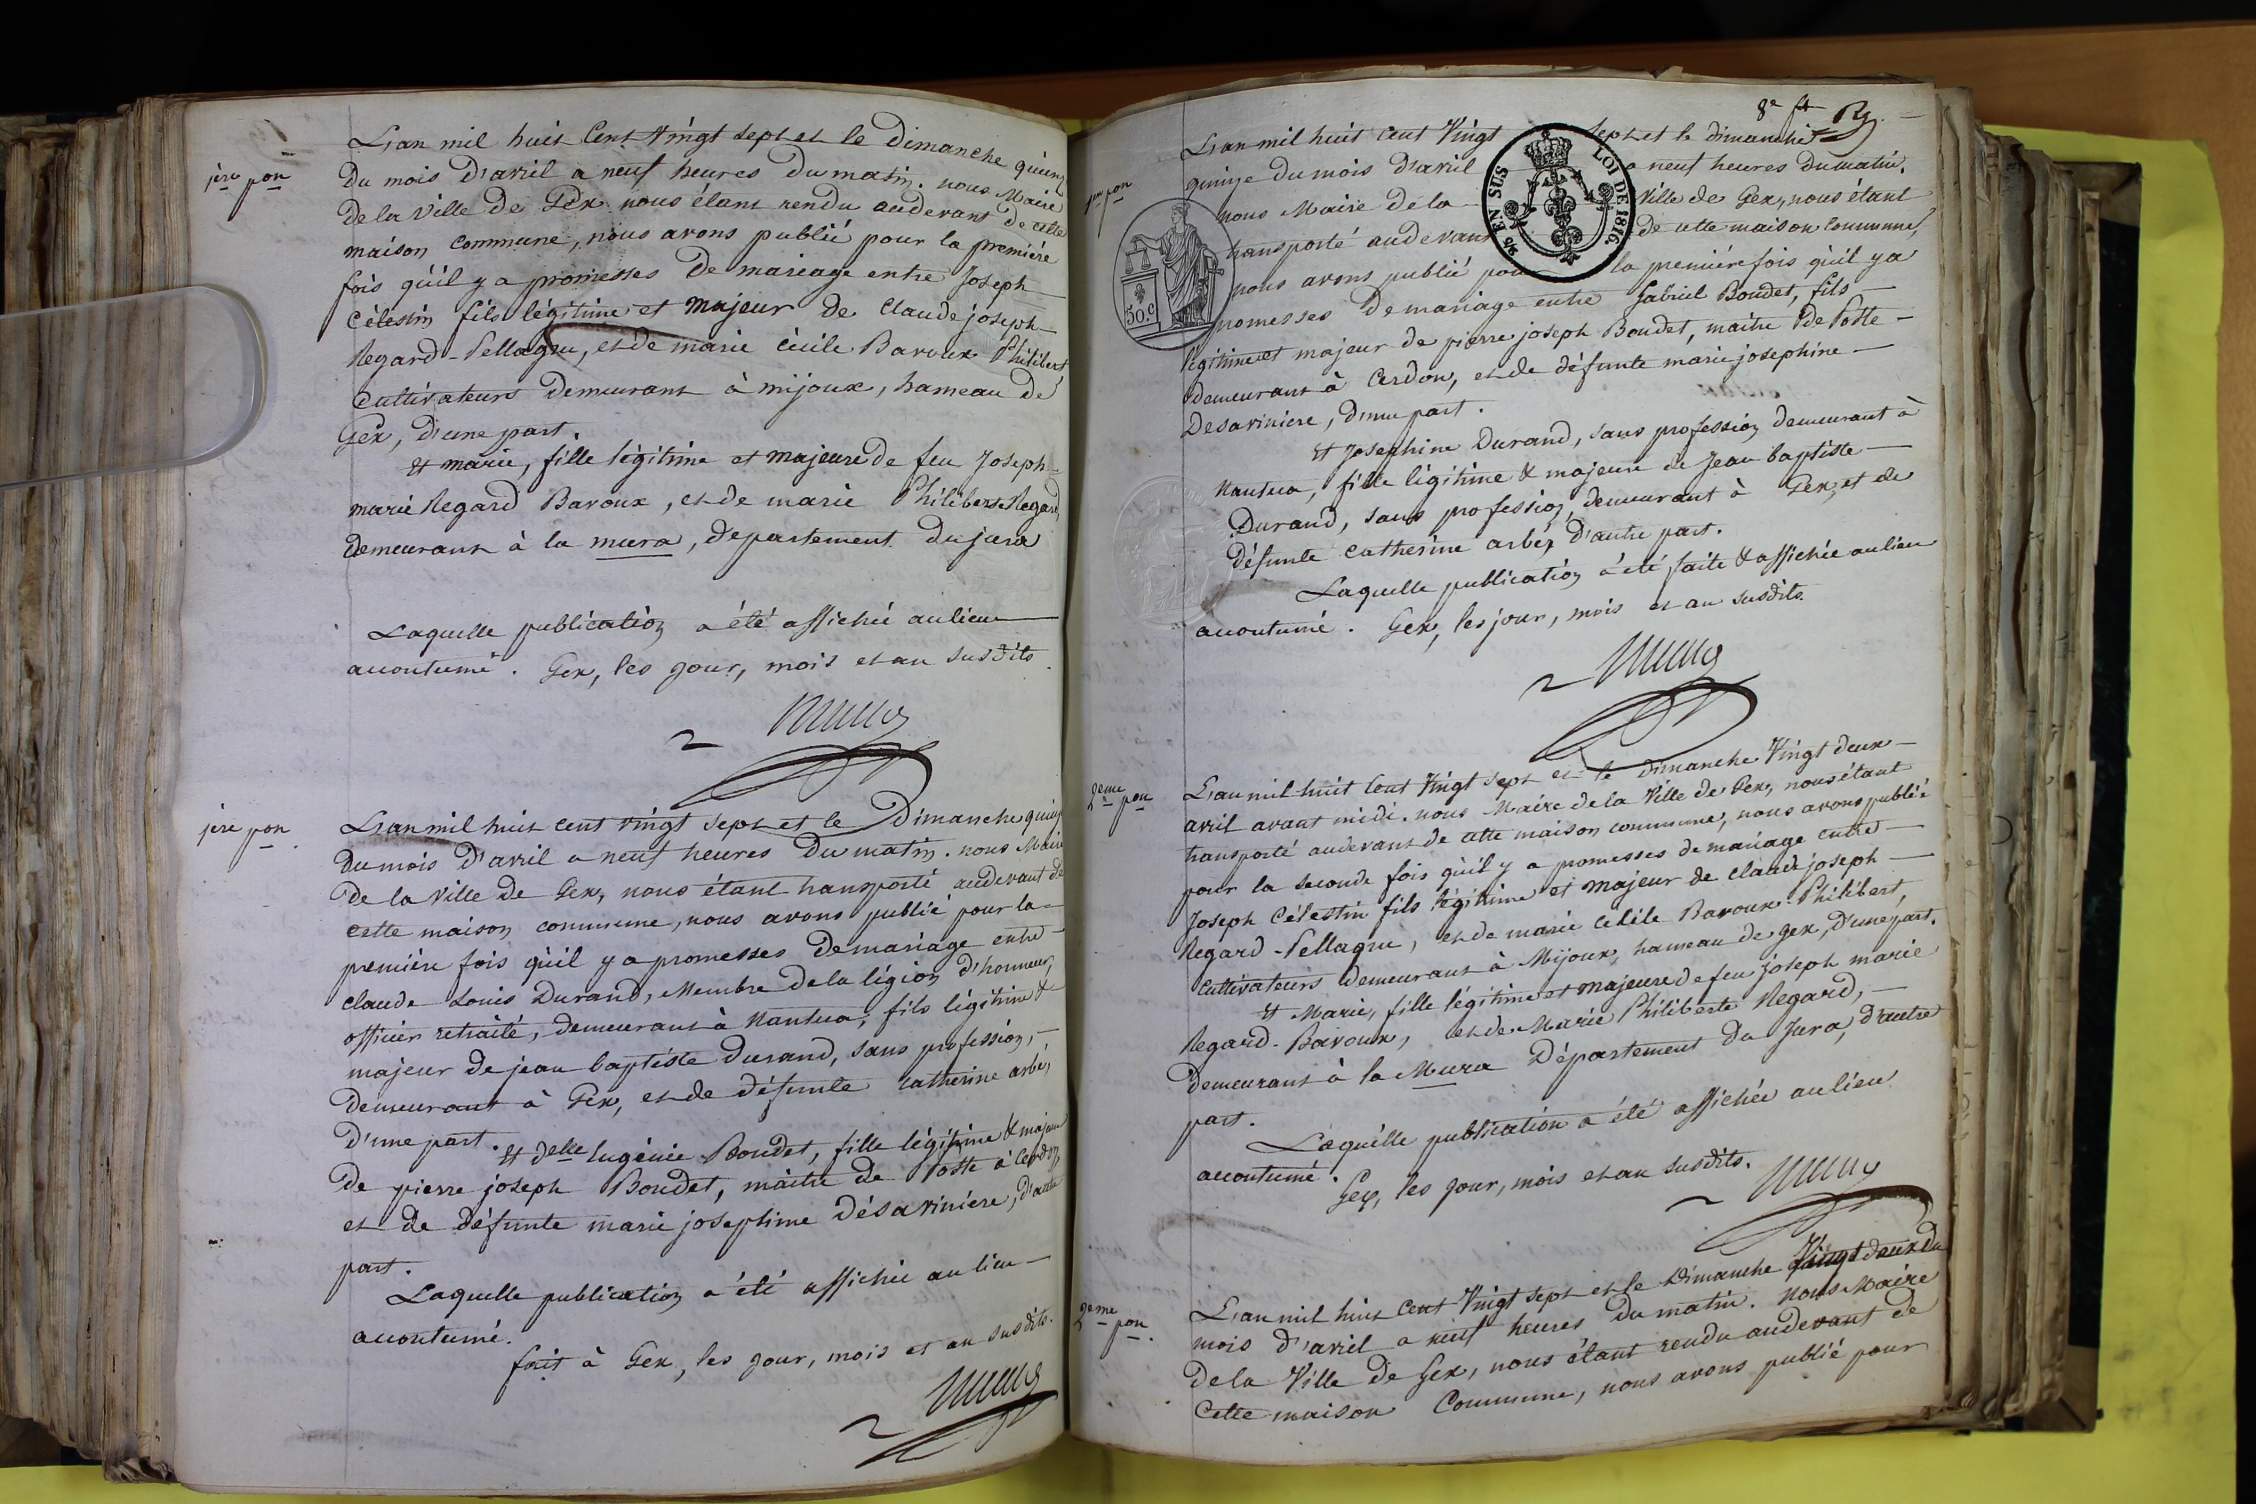 1ère pon
L'an mil huit Cent Vingt sept et le Dimanche quinze
Du mois D'avril a neuf heures Du matin. nous Maire
De la Ville de Gex nous étant rendu audevant de cette
maison commune, nous avons publié pour la première
fois qu'il y a promesses De mariage entre Joseph
Célestin fils légitime et majeur de Claude joseph
Regard-Pellagru, et de marie Cécile Baroux Philibert
Cultivateurs Demeurant à mijoux, hameau de
Gex, D'une part.
et marie, fille légitime et majeure de feu Joseph
marie Regard Baroux, et de marie Philiberte Regard
demeurant à la mura, departement du jura
Laquelle publication a été affichée au lieu
accoutumé. Gex, les jour, mois et an susdits
1ère pon.
L'an mil huit cent vingt sept et le Dimanche quinze
Du mois D'avril a neuf heures Du matin. nous Maire
De la Ville de Gex, nous étant transporté audevant de
cette maison commune, nous avons publié pour la
première fois qu'il y a promesses De mariage entre
Claude Louis Durand, Membre de la légion d'honneur,
officier retraité, demeurant à Nantua, fils légitime &
majeur de jean baptiste Durand, sans profession,
Demeurant à Gex, et de défunte Catherine arbez,
D'une part.
Et delle Eugénie Boudet, fille légitime & majeure
De pierre joseph Boudet, maître de Poste à Cerdon,
et de défunte marie josephine Désaviniere, d'autre
part.
Laquelle publication a été affichée au lieu
accoutumé.
fait à Gex, les jour, mois et an susdits.
8e ft
1ere pon
L'an mil huit cent Vingt sept et le dimanche
quinze du mois d'avril a neuf heures du matin.
nous Maire de la Ville de Gex, nous étant
transporté audevant de cette maison commune,
nous avons publié pour la première fois qu'il y a
promesses de mariage entre Gabriel Boudet, fils
légitime et majeur de pierre joseph Boudet, maitre de Poste
demeurant à Cerdon, et de défunte marie josephine
Desaviniere, d'une part.
Et Josephine Durand, sans profession demeurant à
Nantua, fille légitime & majeure de Jean baptiste
Durand, sans profession, demeurant à Gex, et de
Défunte Catherine arbez D'autre part.
Laquelle publication a été faite & affichée au lieu
accoutumé. Gex, les jour, mois et an susdits
96 EN SUS
LOI DE 1816.
50.c
2eme pon
L'an mil huit Cent Vingt sept et le dimanche Vingt deux
avril avant midi. nous Maire de la Ville de Gex, nous étant
transporté audevant de cette maison commune, nous avons publié
pour la seconde fois qu'il y a promesses de mariage entre
Joseph Célestin fils légitime et majeur de Claude joseph
Regard-Pellagru, et de marie Cécile Baroux-Philibert,
Cultivateurs demeurant à Mijoux, hameau de gex, D'une part.
Et Marie, fille légitime et majeure de feu joseph marie
Regard-Baroux, et de Marie Philiberte Regard,
demeurant à la Mura Département du Jura, d'autre
part.
Laquelle publication a été affichée au lieu
accoutumé.
Gex, les jour, mois et an susdits.
2eme pon.
L'an mil huit Cent Vingt sept et le Dimanche Vingt deux du
mois d'avril a neuf heures du matin. Nous Maire
de la Ville de Gex, nous étant rendu audevant de
Cette maison Commune, nous avons publié pour